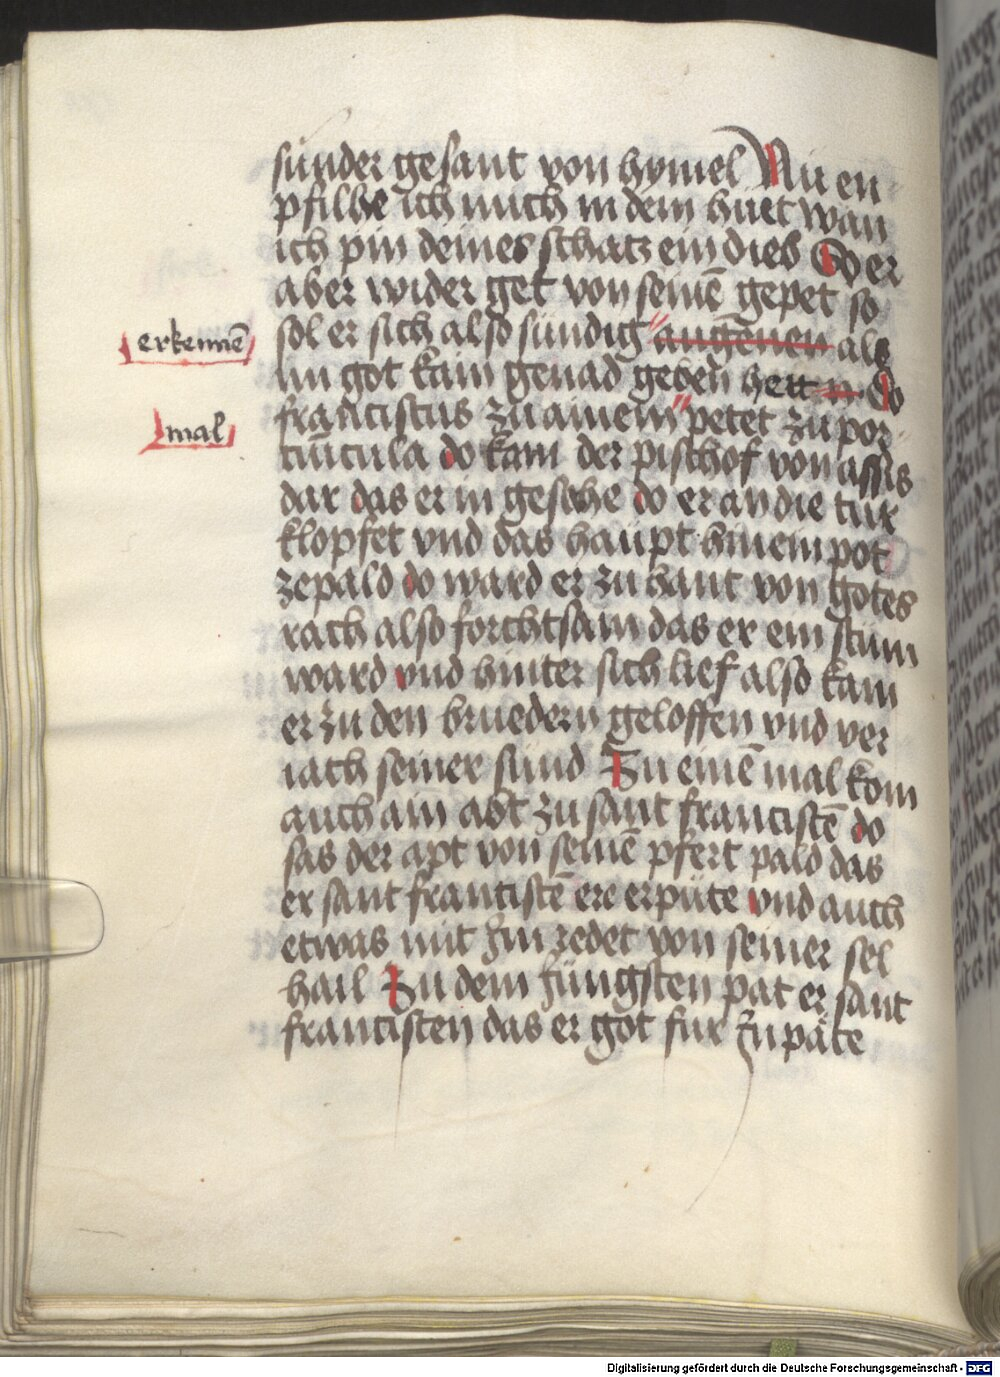 sunder gesant von hymel Nu en
pfilhe ich mich in dem huet wan
ich pin deines schatz ein dieb So er
aber wider get von seinē gepet so
sol er sich also sündig augēnen als
im got kain genad geben hett n Do
franciscus zu ainem petet zu por
ciūcula do kam der pischof von assis
dar das er in gesehe do er an die tür
klopfet vnd das haupt hinein pot
zepald do ward er zu hant von gotes
rach also forchtsam das er ein stum
ward vnd hinter sich lief also kam
er zu den bruedern geloffen vnd ver
iach seiner sünd Zu einē mal kom
auch ain abt zu sant francistē do
sas der apt von seinē pfert pald das
er sant francistē ere erpüte vnd auch
etwas mit im redet von seiner sel
hail Zu dem jungsten pat er sant
francisten das er got fur in päte
erkennē
mal
Digitalisierung gefördert durch die Deutsche Forschungsgemeinschaft - DFG